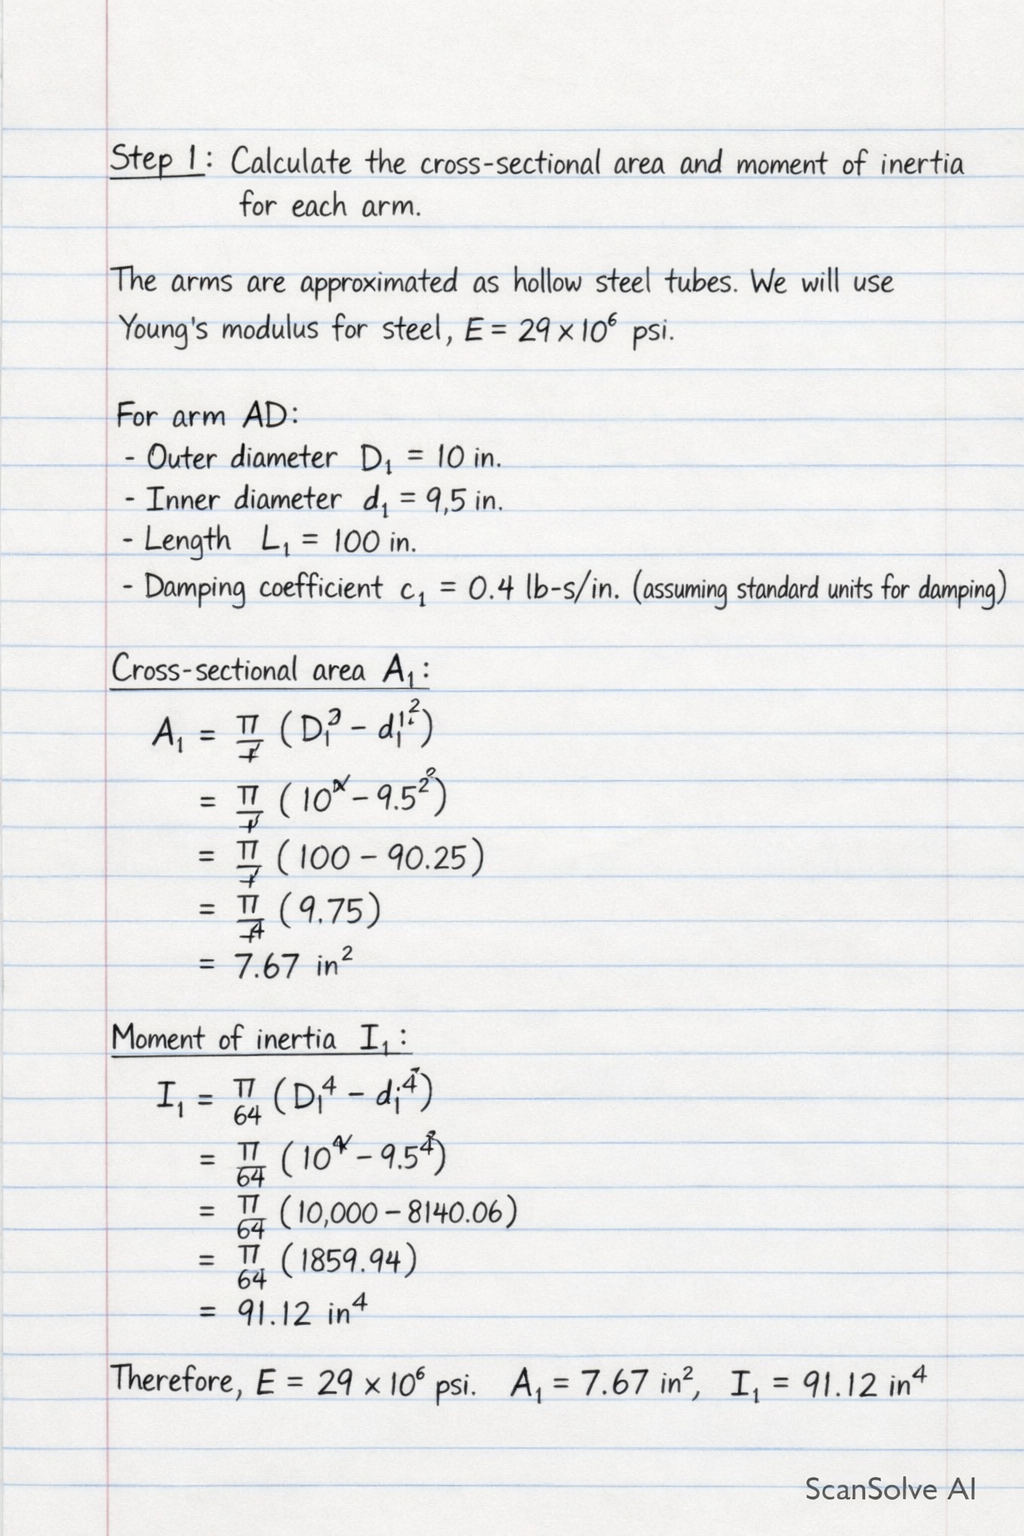 Step 1: Calculate the cross-sectional area and moment of inertia
for each arm.
The arms are approximated as hollow steel tubes. We will use
Young's modulus for steel, E = 29 × 10⁶ psi.
For arm AD:
- Outer diameter D₁ = 10 in.
- Inner diameter d₁ = 9,5 in.
- Length L₁ = 100 in.
- Damping coefficient c₁ = 0.4 lb-s/in. (assuming standard units for damping)
Cross-sectional area A₁:
A₁ = π/ (D₁² - d₁²)
= π/ (10 - 9.5²)
= π/ (100 - 90.25)
= π/4 (9.75)
= 7.67 in²
Moment of inertia I₁:
I₁ = π/64 (D₁⁴ - d₁⁴)
= π/64 (10⁴ - 9.5⁴)
= π/64 (10,000 - 8140.06)
= π/64 (1859.94)
= 91.12 in⁴
Therefore, E = 29 × 10⁶ psi. A₁ = 7.67 in², I₁ = 91.12 in⁴
ScanSolve AI